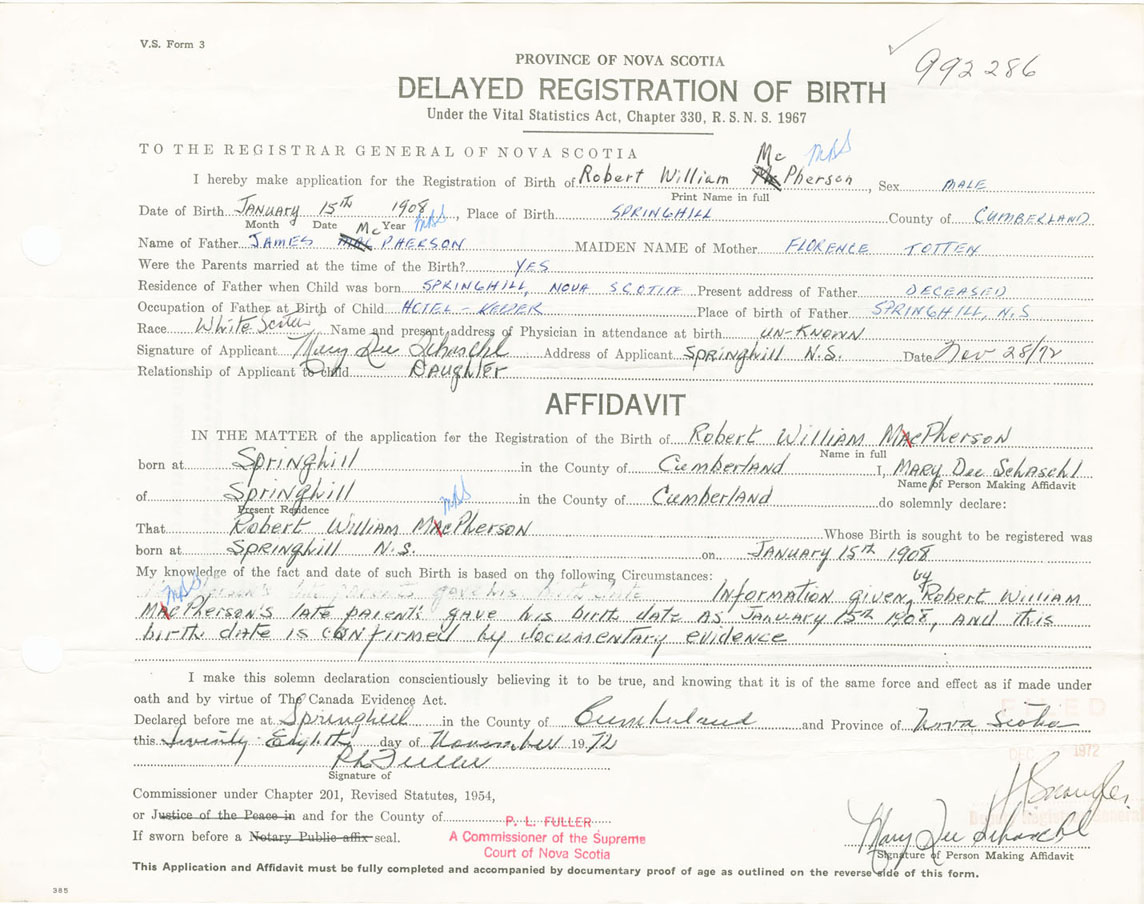 V.S. Form 3
992286
PROVINCE OF NOVA SCOTIA
DELAYED REGISTRATION OF BIRTH
Under the Vital Statistics Act, Chapter 330, R. S. N. S. 1967
TO THE REGISTRAR GENERAL OF NOVA SCOTIA
Mc MDS
I hereby make application for the Registration of Birth of Robert William Pherson, Sex MALE
Print Name in full
Date of Birth JANUARY 15TH 1908, Place of Birth SPRINGHILL County of CUMBERLAND
Month Date Year
Mc MDS
Name of Father JAMES MAC PHERSON MAIDEN NAME of Mother FLORENCE TOTTEN
Were the Parents married at the time of the Birth? YES
Residence of Father when Child was born SPRINGHILL, NOVA SCOTIA Present address of Father DECEASED
Occupation of Father at Birth of Child HOTEL - KEEPER Place of birth of Father SPRINGHILL, N.S
Race White Name and present address of Physician in attendance at birth UN-KNOWN
Signature of Applicant Mary Dee Schaschl Address of Applicant Springhill N.S. Date Nov 28/72
Relationship of Applicant to child Daughter
AFFIDAVIT
IN THE MATTER of the application for the Registration of the Birth of Robert William MacPherson
Name in full
born at Springhill in the County of Cumberland I, Mary Dee Schaschl
Name of Person Making Affidavit
of Springhill in the County of Cumberland do solemnly declare:
Present Residence
MDS
That Robert William MacPherson Whose Birth is sought to be registered was
born at Springhill N.S. on January 15th 1908
My knowledge of the fact and date of such Birth is based on the following Circumstances:
MDS Information given by Robert William
MacPherson's late parents gave his birth date as January 15th 1908, and this
birth date is confirmed by documentary evidence
I make this solemn declaration conscientiously believing it to be true, and knowing that it is of the same force and effect as if made under
oath and by virtue of The Canada Evidence Act.
Declared before me at Springhill in the County of Cumberland and Province of Nova Scotia
this Twenty Eighth day of November 1972
DEC 1972
P L Fuller
Signature of
Commissioner under Chapter 201, Revised Statutes, 1954,
or Justice of the Peace in and for the County of
If sworn before a Notary Public affix seal.
P. L. FULLER
A Commissioner of the Supreme
Court of Nova Scotia
Mary Dee Schaschl
Signature of Person Making Affidavit
This Application and Affidavit must be fully completed and accompanied by documentary proof of age as outlined on the reverse side of this form.
385